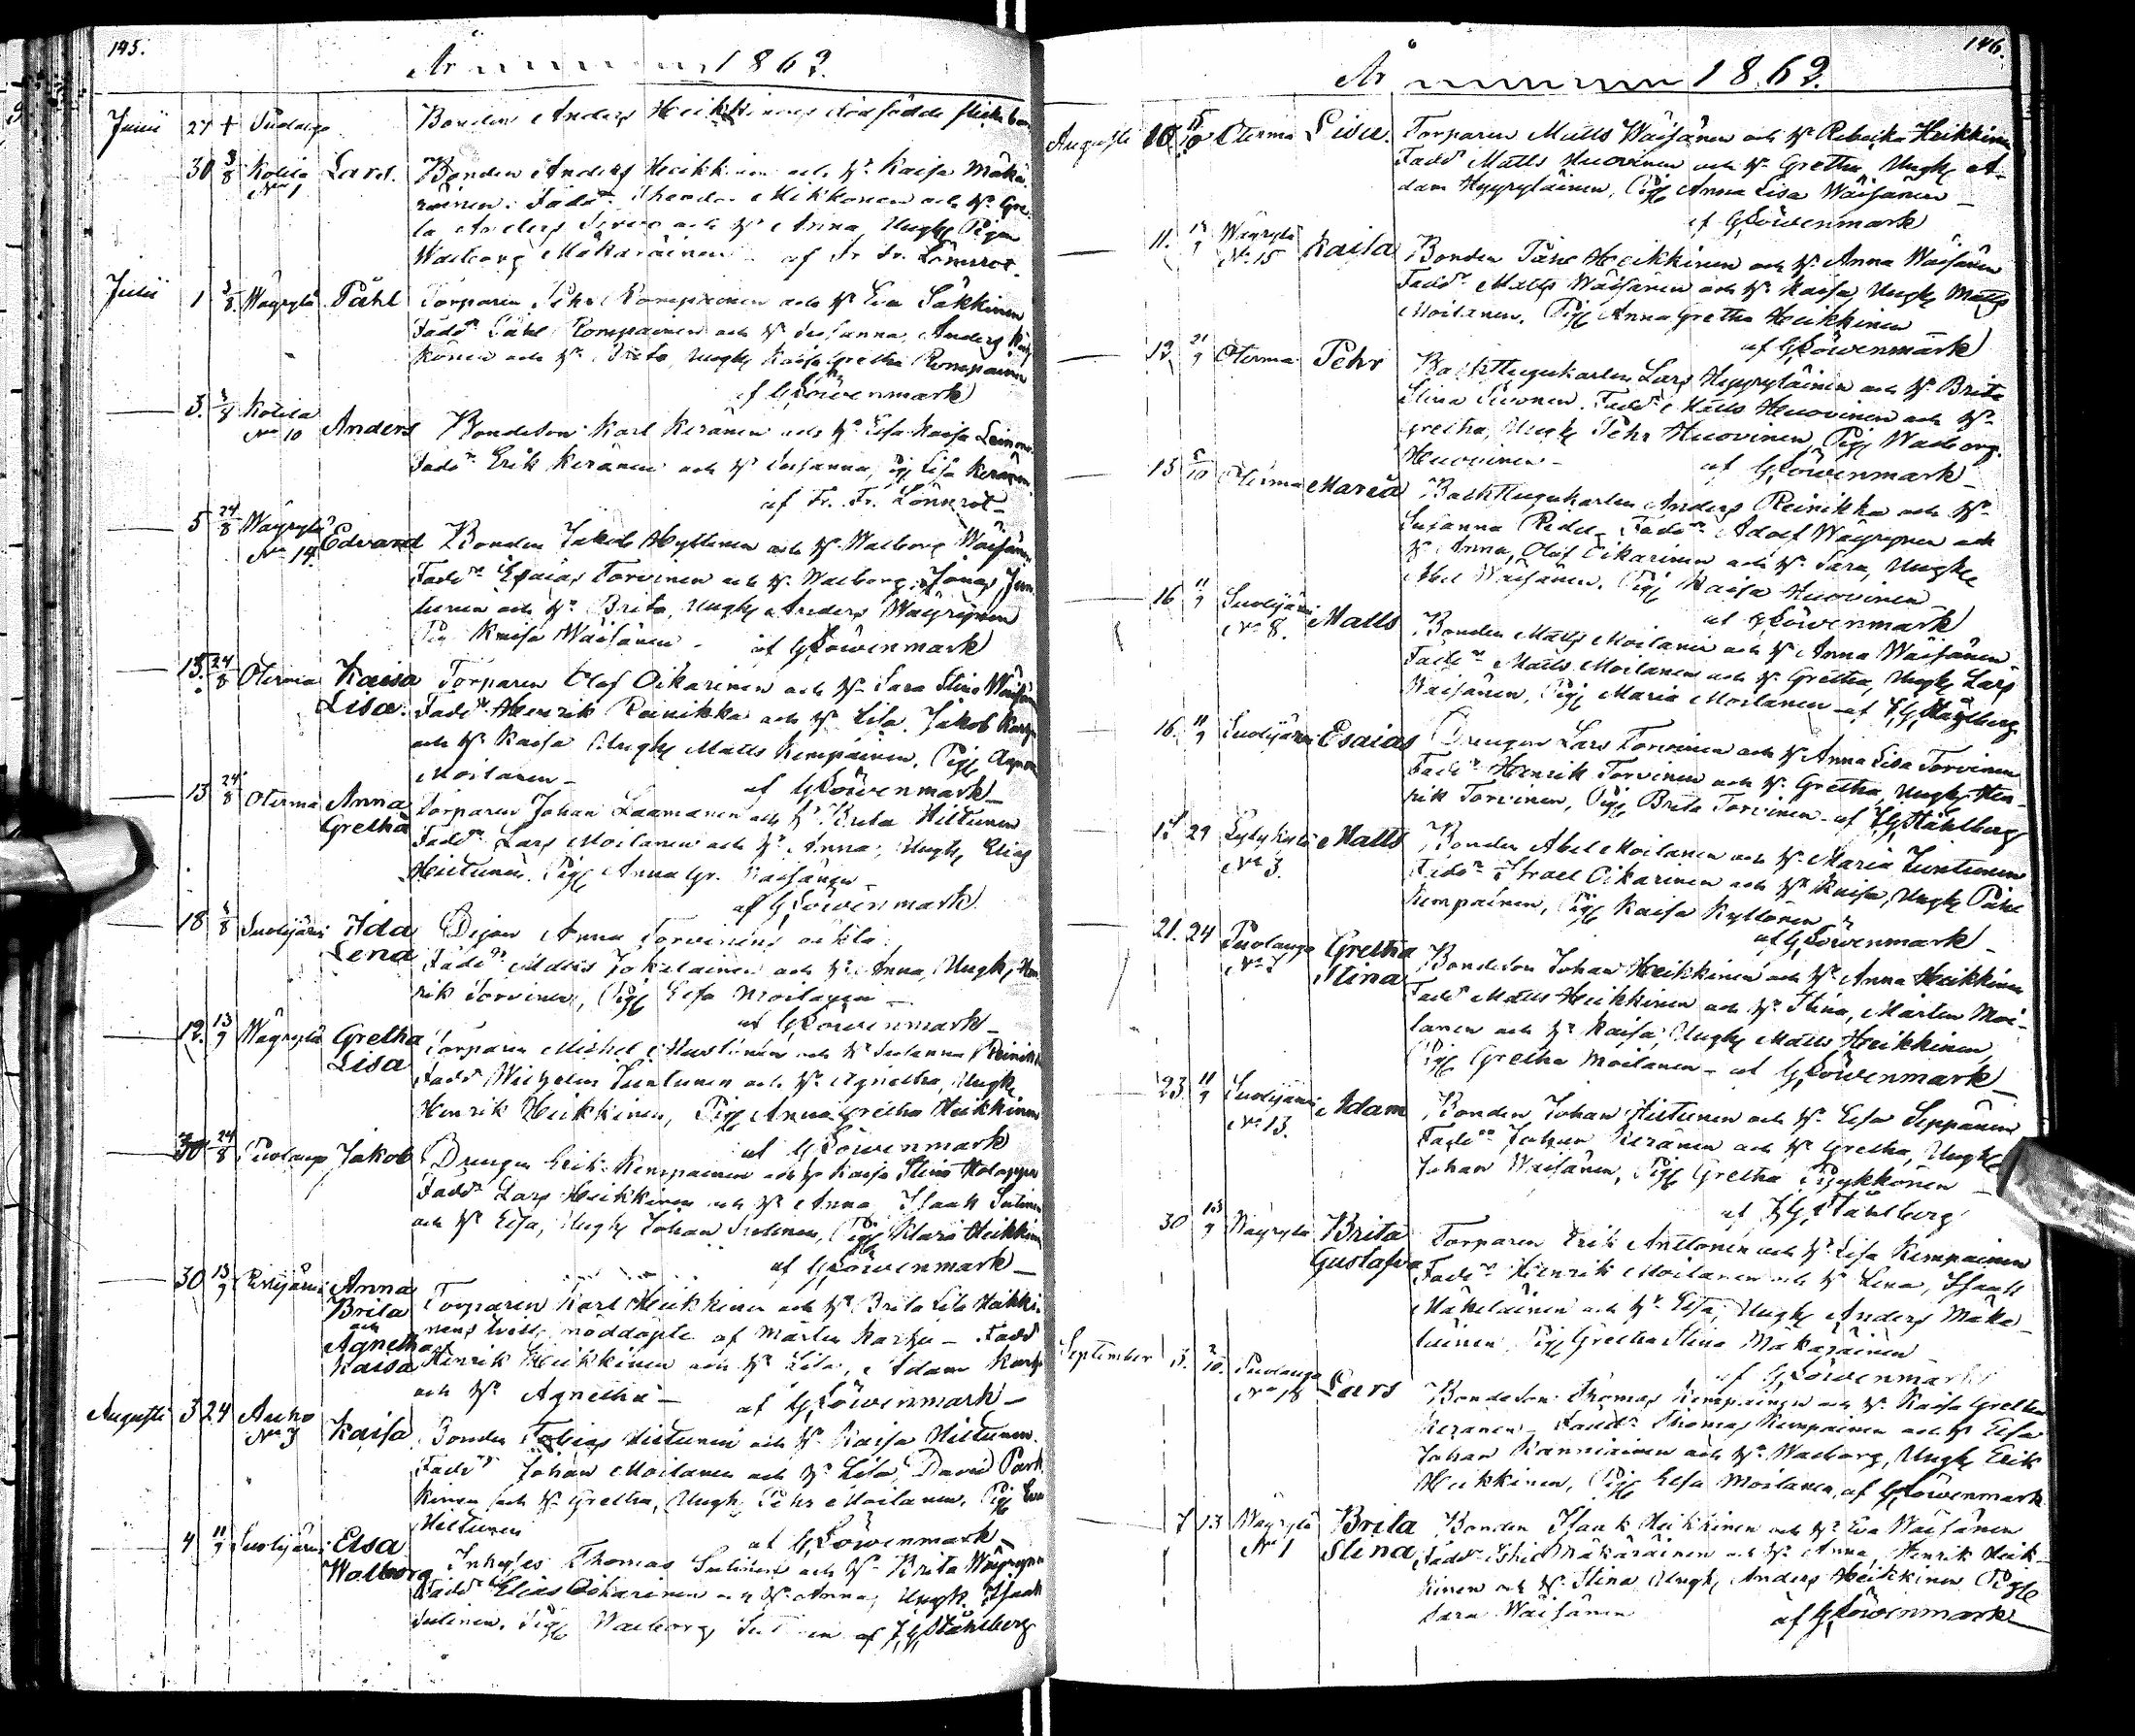 145.
År 1863.
Junii 27 + Puolango Bonden Anders Heikkinens dödfödde flickebarn
30 3/8 Kolila Lars. Bonden Anders Heikkinen och H. Kaisa Mäkä-
No 1 räinen. Fadd. Theodor Mikkonen och H. Gre-
ta Anders och H. Anna, Ungk Pigan
Walborg Mäkäräinen af Fr. Fr. Lönnrot.
Julii 1 3/8 Wäyrylä Påhl Torparen Pehr Kempainen och H. Eva Säkkinen
Fadd. Påhl Kempainen och H. Susanna, Anders
könen och H. Brita, Ungk Kaisa Gretha Kempainen
af G Löwenmark
3. 3/8 Kolila Anders Bondeson Karl Keränen och H. Elsa Kaisa Leinonen
No 10 Fadd. Erik Keränen och H. Susanna, Pig Lisa Keränen
af Fr. Fr. Lönnrot
5 24/8 Wäyrylä Edvard Bonden Jakob Hyttinen och H. Walborg Wäisänen
No 14. Fadd. Esaias Torvinen och H. Walborg, Jonas Jun-
tunen och H. Brita, Ungk Anders Wäyrynen
Pig Kaisa Wäisänen. af G Löwenmark
13. 24/8 Oterma Kaisa Torparen Olof Oikarinen och H. Sara Stina Wäisänen
Lisa. Fadd. Henrik Reinikka och H. Lisa. Jakob Karhu
och H. Kaisa Ungk Matts Kempainen, Pig Agneta
Moilanen af G Löwenmark
13 24/8 Oterma Anna Torparen Johan Laamanen och H. Brita Hiltunen
Gretha Fadd. Lars Moilanen och H. Anna, Ungk Elias
Hiltunen. Pig Anna Gr. Wäisänen
af G Löwenmark.
18 3/8 Suolijärvi Ida Pigan Anna Torvinens oäkta.
Lena Fadd. Matts Jokelainen och H. Anna, Ungk Hen-
rik Torvinen, Pig Elsa Moilanen
af G Löwenmark
12. 13/9 Wäyrylä Gretha Torparen Michel Mustonen och H. Susanna Reinikka
Lisa Fadd. Wilhelm Juntunen och H. Agnetha, Ungk
Henrik Heikkinen, Pig Anna Gretha Heikkinen
af G Löwenmark
30 24/8 Puolango Jakob Drengen Erik Kempainen och H. Kaisa Stina Holappa
Fadd. Lars Heikkinen och H. Anna, Isaak Sutinen
och H. Elsa, Ungk Johan Sutinen, Pig Klara Heikkinen
af G Löwenmark
30 13/9 Puolijärvi Anna Torparen Karl Heikkinen och H. Brita Lisa Heikki-
Brita nens twill. nöddöpte af Mårten Karhu Fadd
och Agnetha Henrik Heikkinen och H. Lisa, Adam Karhu
Kaisa och H. Agnetha af G Löwenmark
Augusti 3 24 Auho Kaisa Bonden Tobias Hiltunen och H. Kaisa Hiltunen.
No 3 Fadd. Johan Moilanen och H. Lisa, David Park-
kinen och H. Gretha, Ungk Pehr Moilanen, Pig Eva
Hiltunen af G Löwenmark
4 11/9 Suolijärvi Elsa Inhyses Thomas Sutinen och H. Brita Wäyrynen
Walborg Fadd. Elias Oikarinen och H. Anna, Ungk Isaak
Sutinen. Pig Walborg Sutinen af J G Ståhlberg
146.
År 1863.
Augusti 10 Oterma Lisa. Torparen Matts Wäisänen och H. Rebecka Heikkinen
Fadd. Matts Huovinen och H. Gretha, Ungk A-
dam Hyyryläinen, Pig Anna Lisa Wäisänen
af G Löwenmark
11. 13/9 Wäyrylä Kaisa Bonden Påhl Heikkinen och H. Anna Wäisänen
No 15 Fadd. Matts Wäisänen och H. Kaisa, Ungk Matts
Moilanen. Pig Anna Gretha Heikkinen
af G Löwenmark
12 21/9 Oterma Pehr Backstugukarlen Lars Hyyryläinen och H. Brita
Stina Fadd. Matts Huovinen och H.
Gretha, Ungk Pehr Huovinen, Pig Walborg
Huovinen af G Löwenmark
15 5/10 Oterma Maria Backstugukarlen Anders Reinikka och H.
Susanna Fadd. Adolf Wäyrynen och
H. Anna, Olof Oikarinen och H. Sara, Ungk
Abel Wäisänen. Pig Kaisa Huovinen
af G Löwenmark
16 11/9 Suolijärvi Matts Bonden Matts Moilanen och H. Anna Wäisänen
No 8. Fadd. Matts Moilanen och H. Gretha, Ungk Lars
Wäisänen, Pig Maria Moilanen af J G Ståhlberg
16. 11/9 Suolijärvi Esaias Drengen Lars Torvinen och H. Anna Lisa Torvinen
Fadd. Henrik Torvinen och H. Gretha, Ungk Hen-
rik Torvinen, Pig Brita Torvinen af J G Ståhlberg
29 Kylä Matts Bonden Abel Moilanen och H. Maria Juntunen
No 3. Fadd. Israel Oikarinen och H. Kaisa, Ungk Påhl
Kempainen, Pig Kaisa Kyllönen
af G Löwenmark
21. 24 Puolango Gretha Bondeson Johan Heikkinen och H. Anna Heikkinen
No 7 Stina Fadd. Matts Heikkinen och H. Stina, Mårten Moi-
lanen och H. Kaisa, Ungk Matts Heikkinen
Pig Gretha Moilanen af G Löwenmark
23. 11/9 Suolijärvi Adam Bonden Johan Hiltunen och H. Elsa Seppänen
No 13. Fadd. Johan Keränen och H. Gretha, Ungk
Johan Wäisänen, Pig Gretha Pyykkönen
af J G Ståhlberg
30 13/9 Wäyrylä Brita Torparen Erik Anttonen och H. Lisa Kempainen
Gustafva Fadd. Henrik Moilanen och H. Lena, Isaak
Mäkeläinen och H. Elsa, Ungk Anders Mäke-
läinen Pig Gretha Stina Mäkäräinen
af G Löwenmark
September 3. 2/10. Puolango Lars Bondeson Thomas Kempainen och H. Kaisa Gretha
No 18 Keränen Fadd. Thomas Kempainen och H. Elsa
Johan Kanniainen och H. Walborg, Ungk Erik
Heikkinen, Pig Elsa Moilanen, af G Löwenmark
7 13 Wäyrylä Brita Bonden Isaak Heikkinen och H. Eva Wäisänen
No 1 Stina Fadd. Mäkäräinen och H. Anna, Henrik Heik-
kinen och H. Stina Ungk Anders Heikkinen Pig
Sara Wäisänen af G Löwenmark